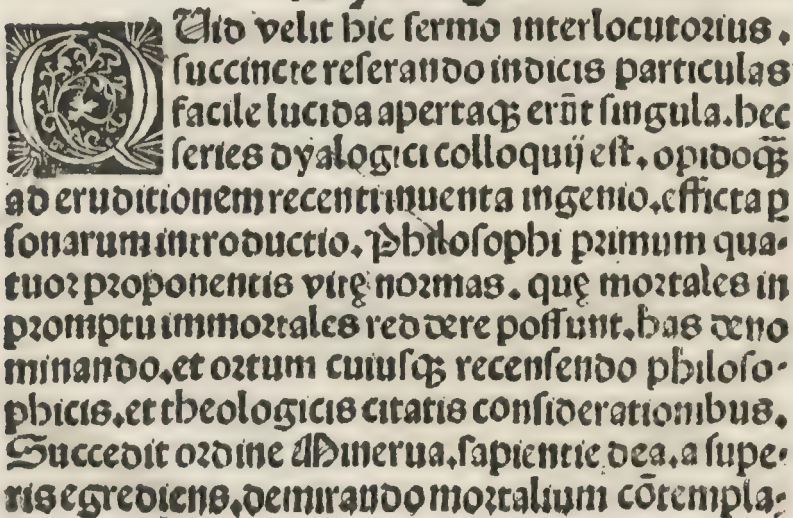 QUid velit hic sermo interlocutorius.
succincte reserando indicis particulas
facile lucida apertaqꝫ erũt singula. hec
series dyalogici colloquij est. opidoqꝫ̃
ad eruditionem recenti inuenta ingenio. efficta ꝑ
sonarum introductio. Philosophi primum qua-
tuor proponentis virtę normas. quę mortales in
promptu immortales reddere possunt. has deno
minando. et ortum cuiusqꝫ recensendo philoso-
phicis. et theologicis citatis considerationibus.
Succedit ordine Minerua. sapientie dea. a supe-
ris egrediens. demirando mortalium cõtempla-